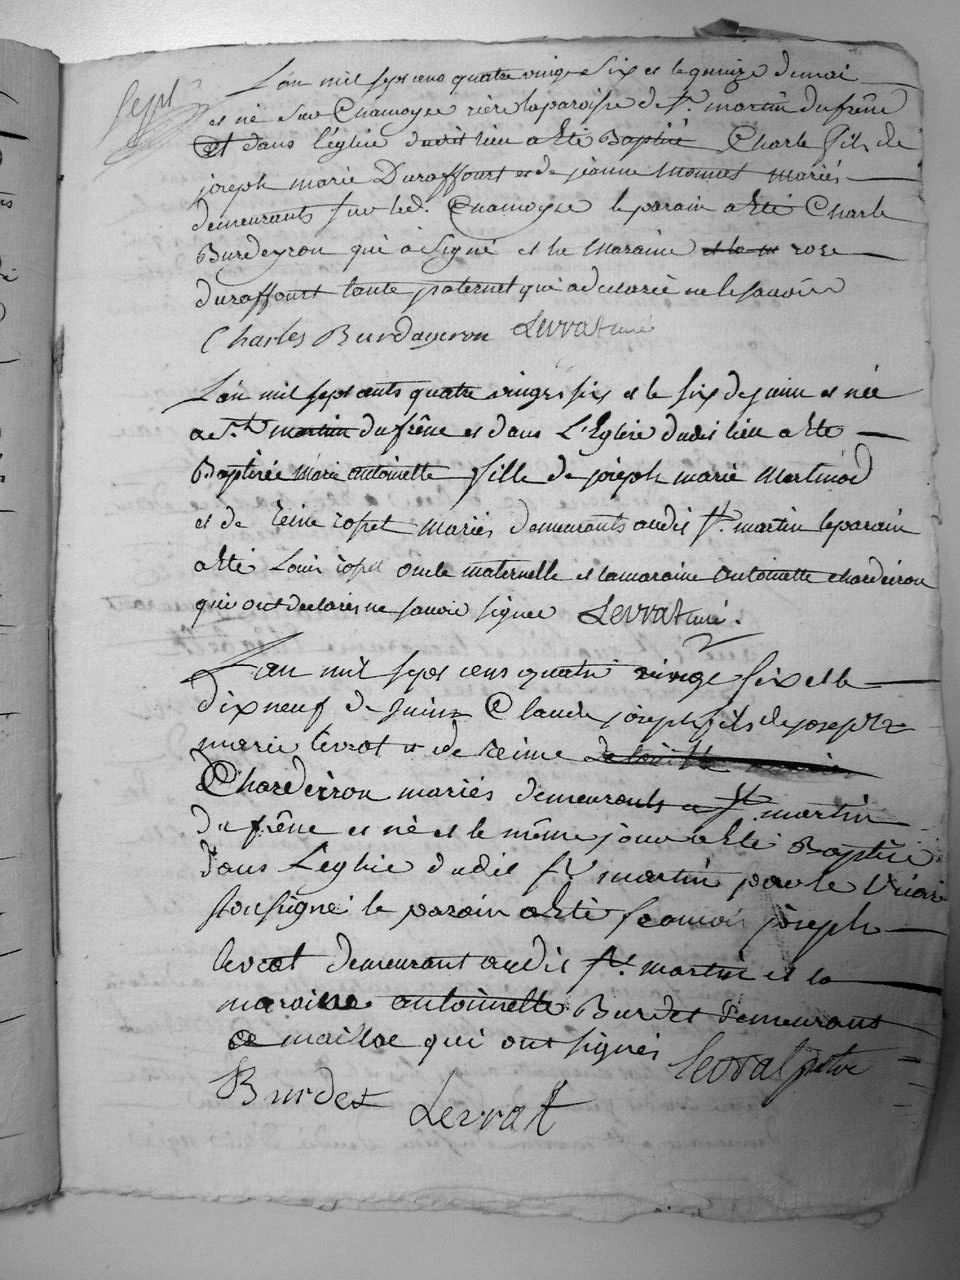 Sept
L'an mil sept cens quatre vingt Six et le quinze de mai
est né sur Chamoyse rière la paroisse de St martin du frêne
Et dans l'église dudit lieu a Eté Baptisé Charle fils de
joseph marie Duraffourt et de jeanne Monnet mariés
demeurants sur led. Chamoyse le parain a Eté Charle
Burdeyron qui a Signé et la Maraine et la m rose
duraffourt tante paternel qui a déclarée ne le savoir
Charles Burdayeron Levrat curé
L'an mil sept cents quatre vingt six et le six de juin est née
a St martin du frêne et dans L'Eglise dudit lieu a Eté
Baptisée Marie antoinette fille de joseph marie Martinod
et de reine ropet mariés demeurants audit St. martin le parain
a Eté Louis ropet oncle maternelle et la maraine antoinette chardeiron
qui ont déclarés ne savoir signer Levrat curé.
L'an mil sept cens quatre vingt six et le
dix neuf de Juin Claude joseph fils de joseph
marie levrat et de reine
Chardeiron mariés demeurants a St martin
du frêne est né et le même jour a Eté Baptisé
dans L'eglise dudit St martin par le Vicaire
Soussigné le parain a Eté françois joseph
levrat demeurant audit St. martin et la
maraine antoinette Burdet demeurant
a maillac qui ont signés levrat ptre
Burdet Levrat